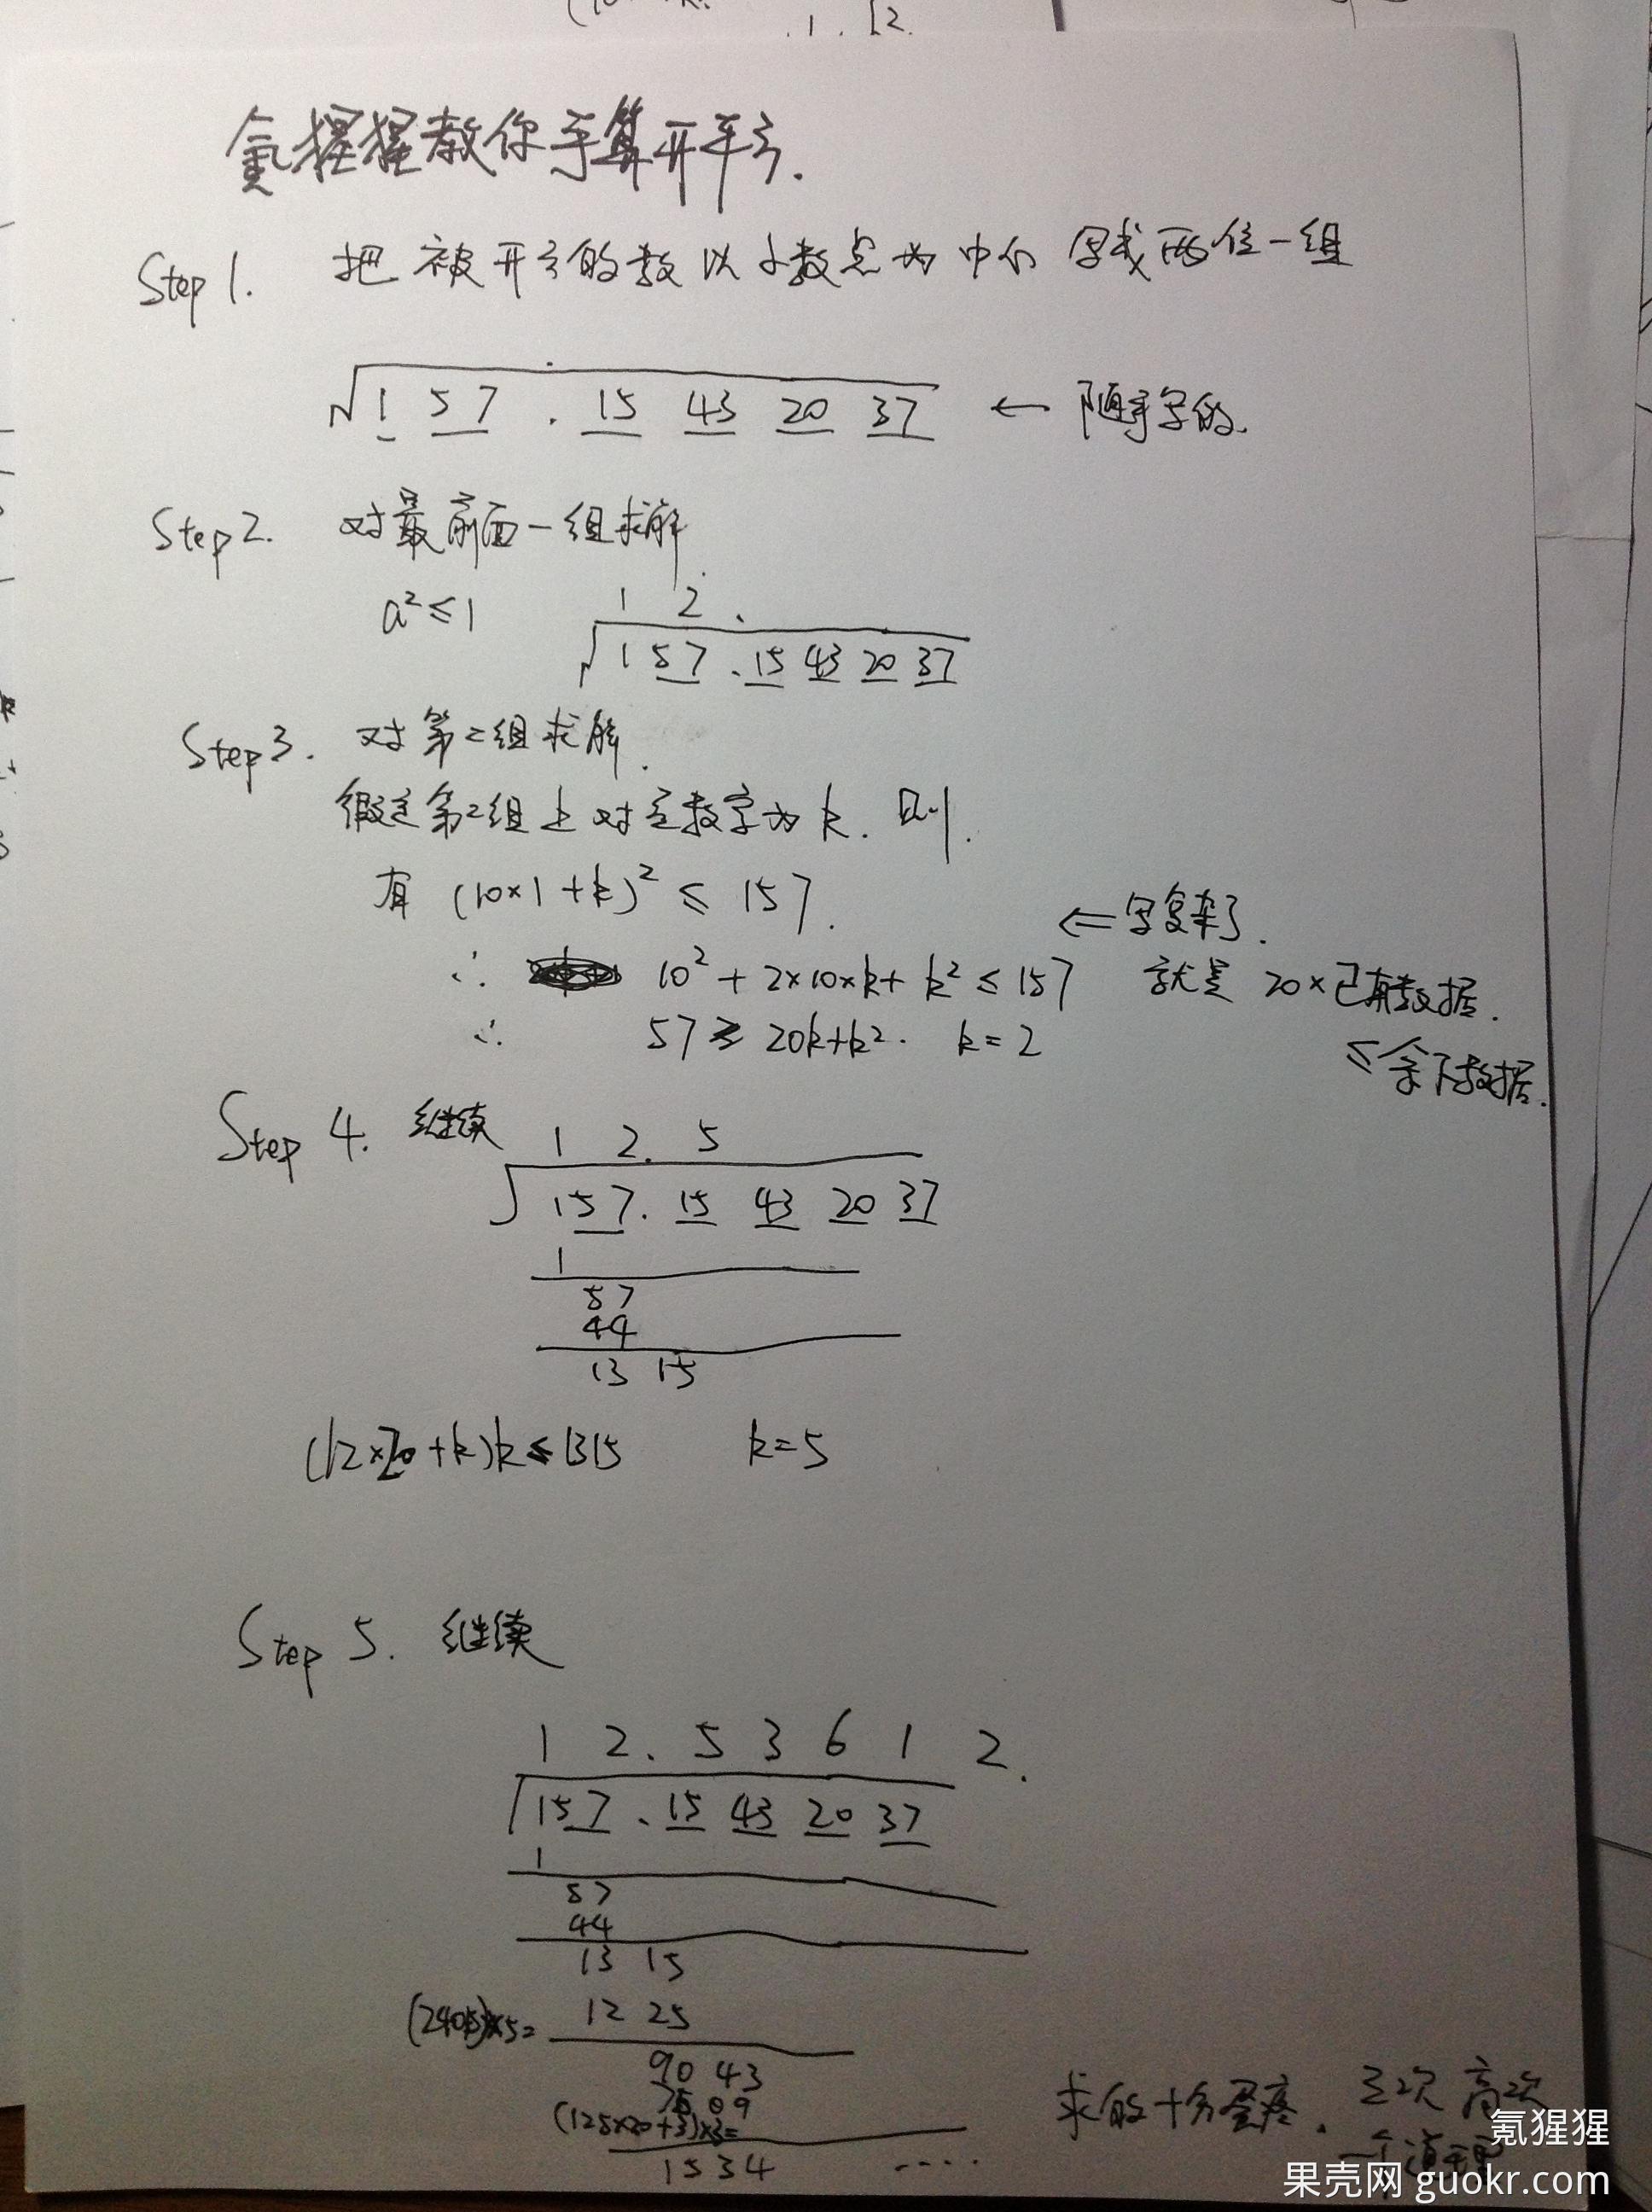 氪猩猩教你手算开平方.
Step 1. 把被开方的数以小数点为中心 写成两位一组
√1 57 . 15 43 20 37 ← 随手写的.
Step 2. 对最前面一组求解.
a² ≤ 1
1 2 .
√1 57 . 15 43 20 37
Step 3. 对第二组求解.
假定第二组上对应数字为 k. 则.
有 (10×1+k)² ≤ 157. ⇐ 写复杂了.
∴ 10² + 2×10×k + k² ≤ 157 就是 20×已有数据.
∴ 57 ≥ 20k+k². k=2 ≤ 余下数据.
Step 4. 继续
1 2. 5
√157. 15 43 20 37
1
57
44
13 15
(12×20+k)k ≤ 1315 k=5
Step 5. 继续
1 2. 5 3 6 1 2.
√157 . 15 43 20 37
1
57
44
13 15
×5= 12 25
90 43
75 09
(125×20+3)×3=
1534 ....
求的十分蛋疼. 三次 高次
一个道理
氪猩猩
果壳网 guokr.com